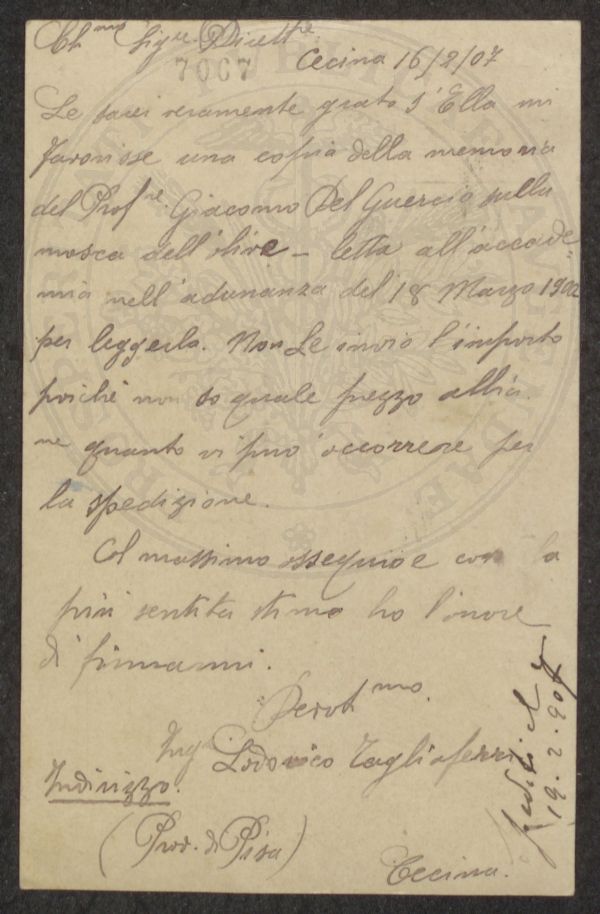 Ch.mo Sig.re Dirett.re
7067
Cecina 16/2/07
Le sarei veramente grato s'Ella mi
favorisse una copia della memoria
del Prof.re Giacomo Del Guercio sulla
mosca dell'olive - letta all'accade=
mia nell'adunanza del 18 Marzo 1902
per leggerla. Non Le invio l'importo
poichè non so quale prezzo abbia
ne quanto vi può occorrere per
la spedizione.
Col massimo ossequio e con la
più sentita stima ho l'onore
di firmarmi.
Devot.mo
Ing. Lodovico Tagliaferri
Indirizzo.
(Prov. di Pisa)
Cecina.
19.2.907